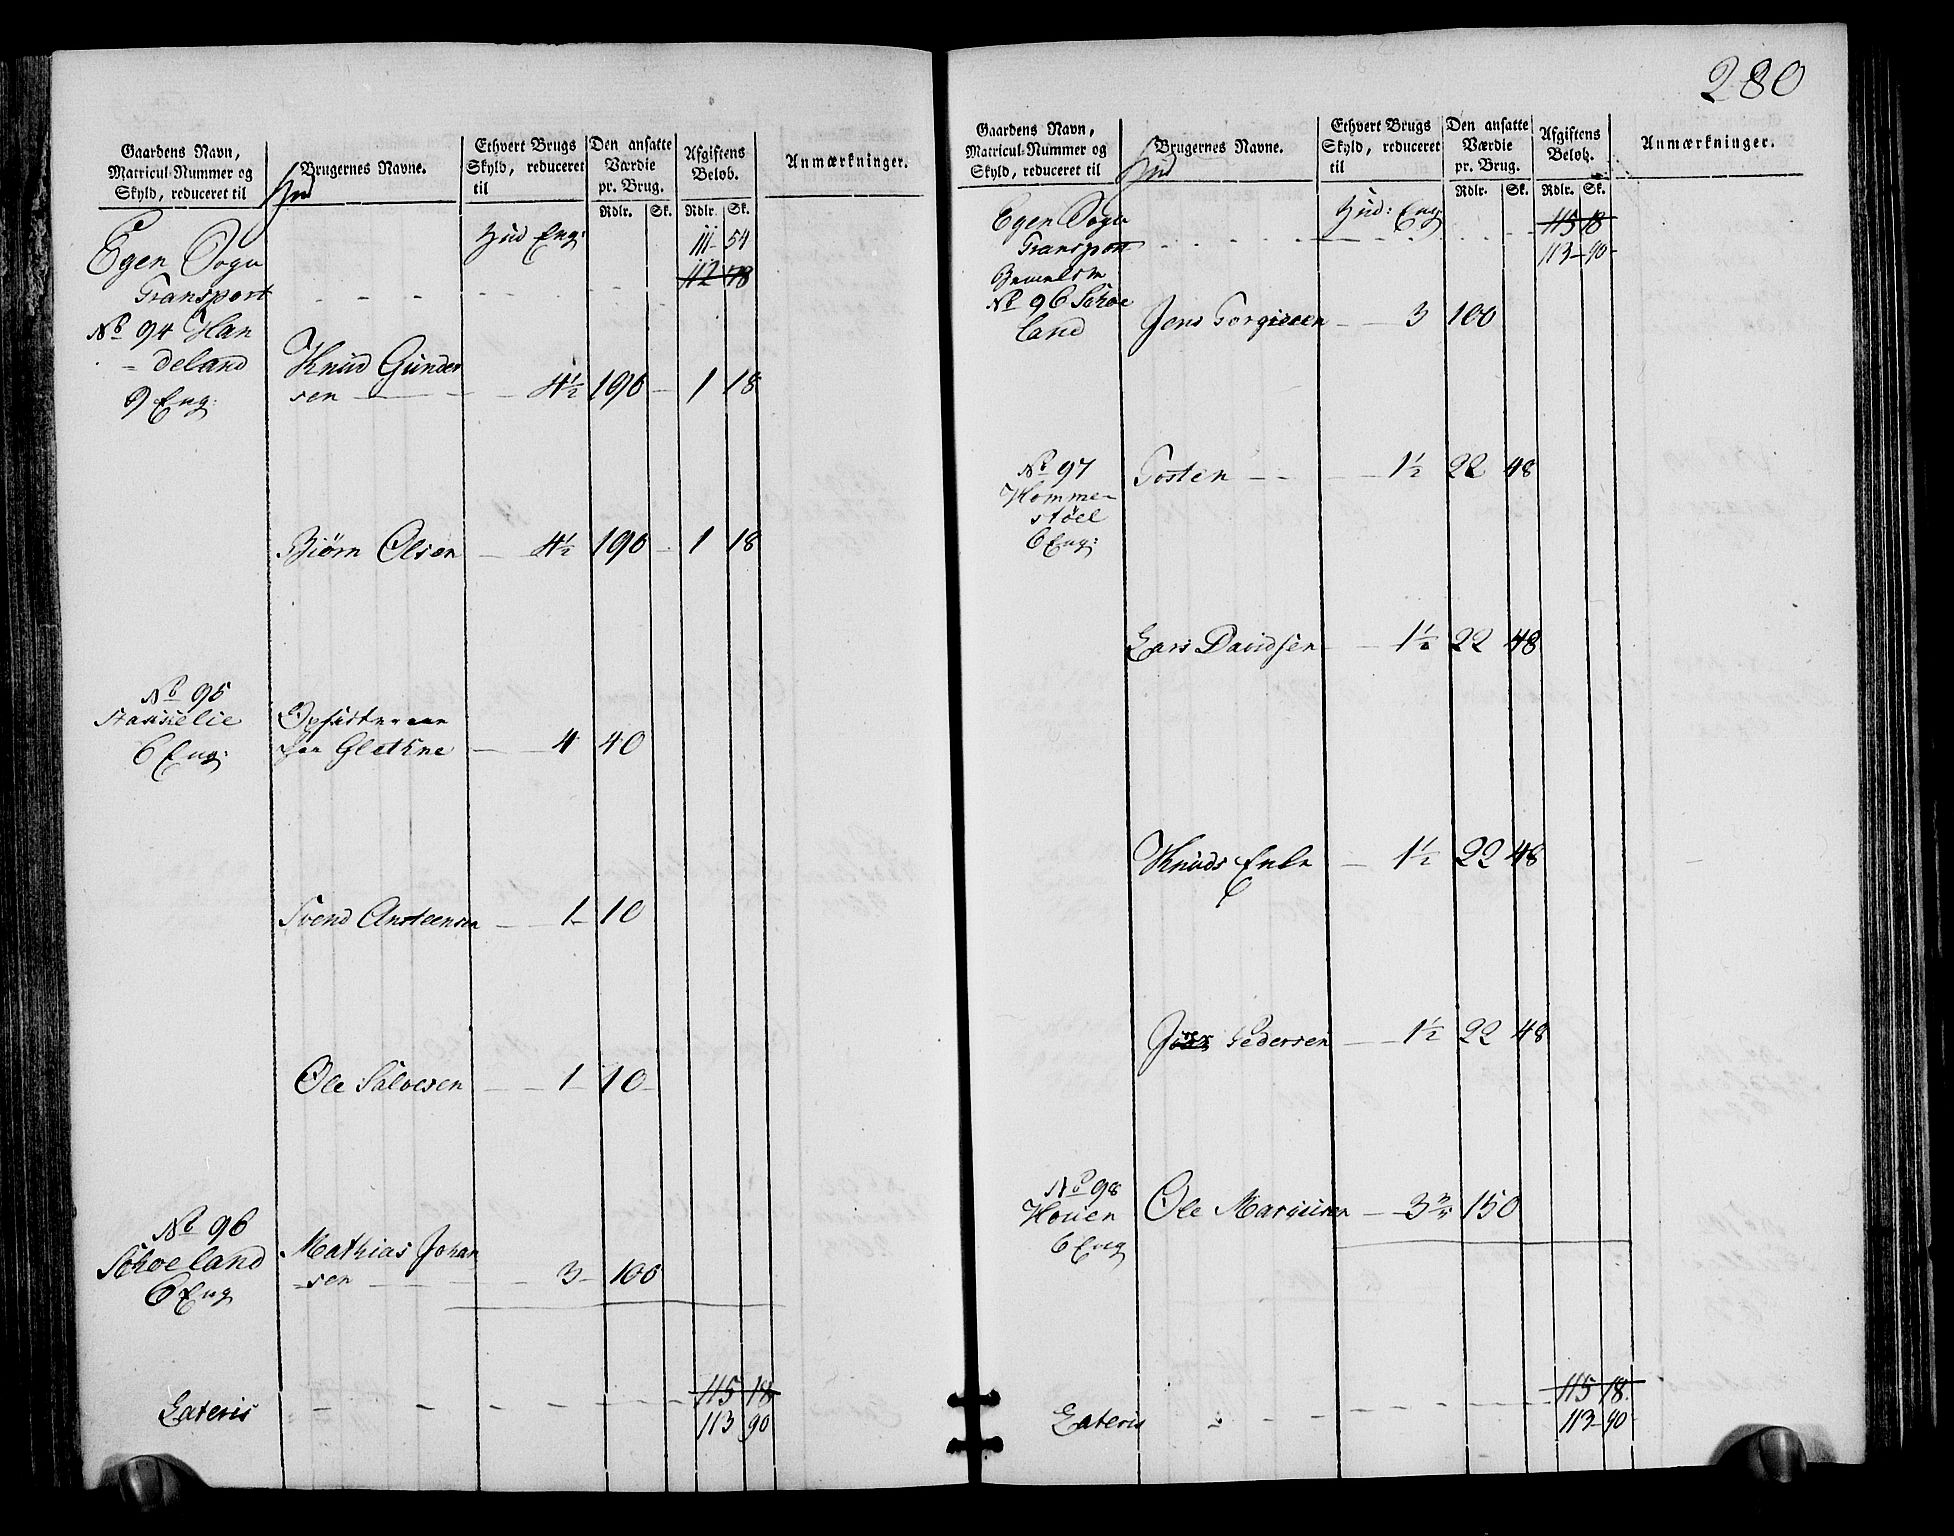 Gaardens Navn, Matricul-Nummer og Skyld, reduceret til Hud
Brugernes Navne.
Ethvert Brugs Skyld, reduceret til
Den ansatte Værdie pr. Brug.
Rdlr. Sk.
Afgiftens Beløb.
Rdlr. Sk.
Anmærkninger.
Egen Sogn Hud Eng: 111 54
Transport 112 78
No 94 Han
deland Knud Gunder
9 Eng: sen 4½ 190 1 18
Biørn Olsen 4½ 190 1 18
No 95
6 Eng: 4 40
Svend Ansteensen 1 10
Ole Salvesen 1 10
No 96
Schoeland Mathias Johan
6 Eng sen 3 100
115 18
Lateris 113 90
280
Gaardens Navn, Matricul-Nummer og Skyld, reduceret til Hud
Brugernes Navne.
Ethvert Brugs Skyld, reduceret til
Den ansatte Værdie pr. Brug.
Rdlr. Sk.
Afgiftens Beløb.
Rdlr. Sk.
Anmærkninger.
Egen Sogn Hud: Eng 115 18
Transport 113 90
No 96 Schoe
land Jens 3 100
No 97 Tosten 1½ 22 48
Homme
støel
6 Eng:
Lars Davidsen 1½ 22 48
Knuds Enke 1½ 22 48
Pedersen 1½ 22 48
No 98
Houen Ole 3 150
6 Eng
115 18
Lateris 113 90